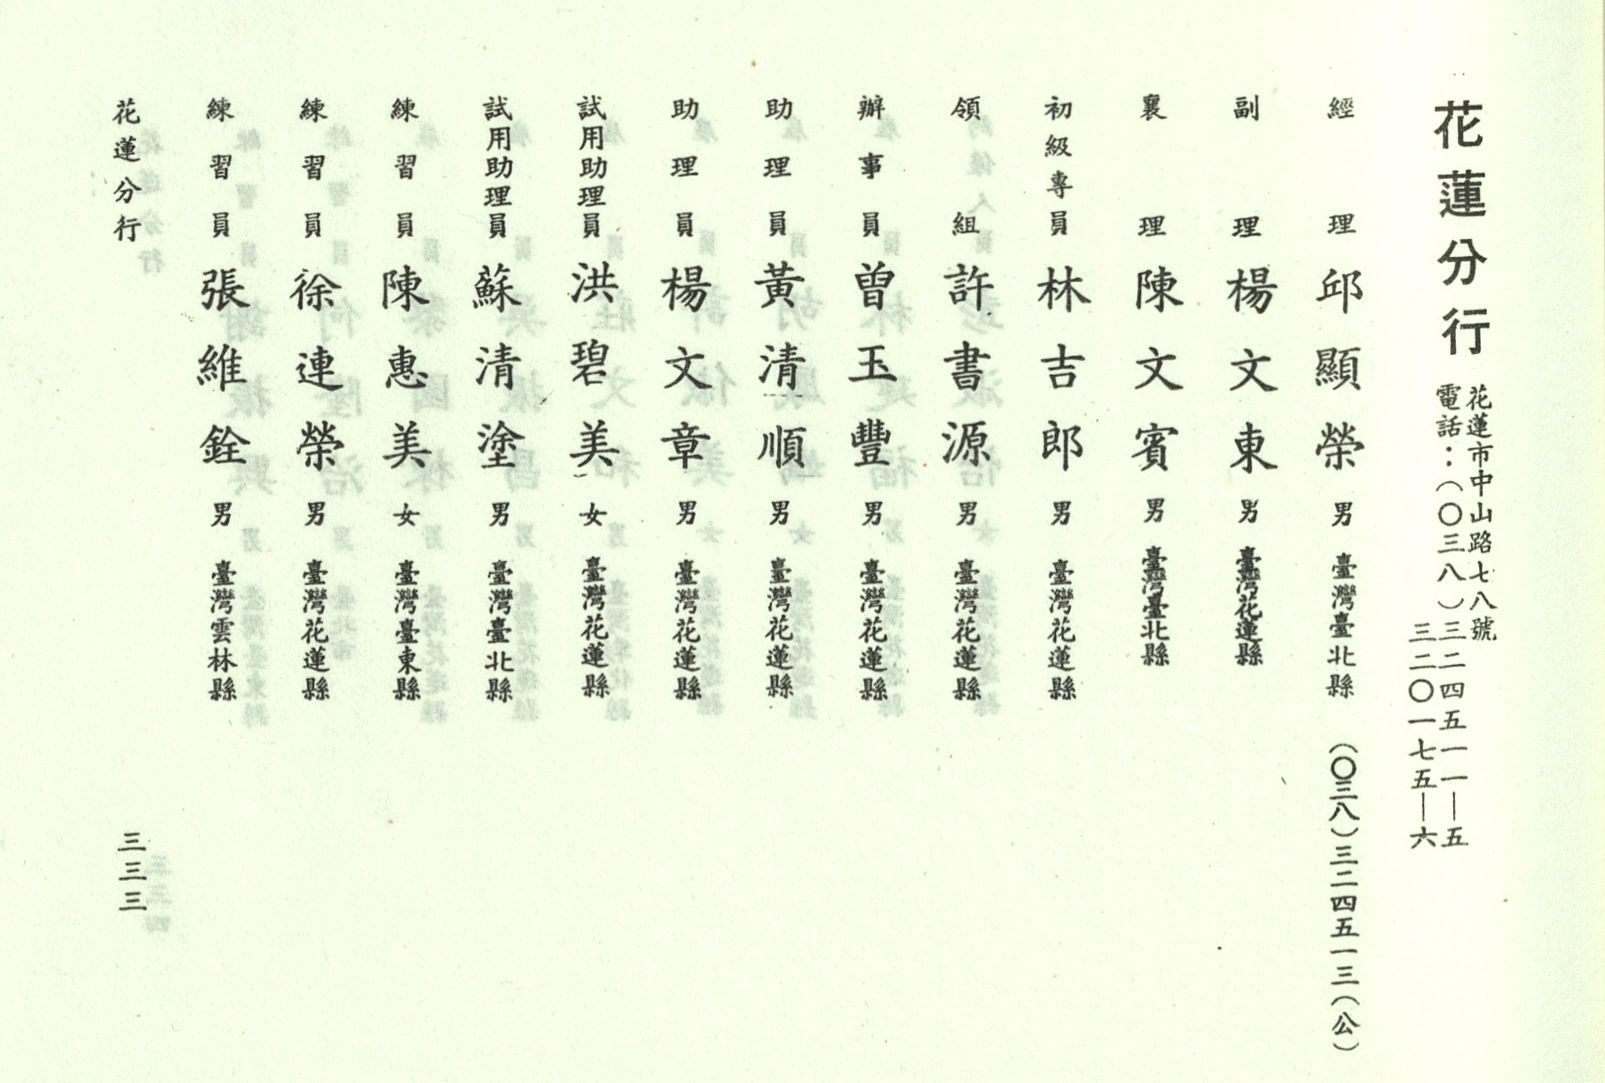 花蓮分行
花蓮市中山路七八號
電話：（〇三八）三二四五一一—五
三二〇一七五—六
經理 邱顯榮 男 臺灣臺北縣 （〇三八）三二四五一三（公）
副理 楊文東 男 臺灣花蓮縣
襄理 陳文賓 男 臺灣臺北縣
初級專員 林吉郎 男 臺灣花蓮縣
領組 許書源 男 臺灣花蓮縣
辦事員 曾玉豐 男 臺灣花蓮縣
助理員 黃清順 男 臺灣花蓮縣
助理員 楊文章 男 臺灣花蓮縣
試用助理員 洪碧美 女 臺灣花蓮縣
試用助理員 蘇清塗 男 臺灣臺北縣
練習員 陳惠美 女 臺灣臺東縣
練習員 徐連榮 男 臺灣花蓮縣
練習員 張維銓 男 臺灣雲林縣
花蓮分行
三三三